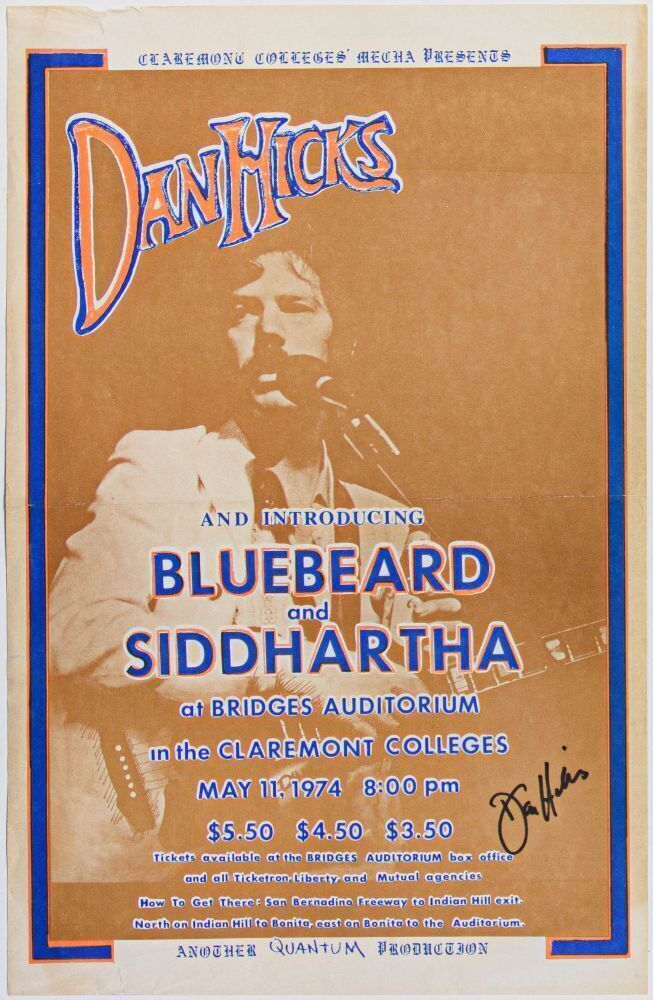 CLAREMONT COLLEGES' MECHA PRESENTS
DAN HICKS
AND INTRODUCING
BLUEBEARD
and
SIDDHARTHA
at BRIDGES AUDITORIUM
in the CLAREMONT COLLEGES
MAY 11, 1974 8:00 pm
$5.50 $4.50 $3.50
Tickets available at the BRIDGES AUDITORIUM box office
and all Ticketron, Liberty, and Mutual agencies
How To Get There: San Bernadino Freeway to Indian Hill exit.
North on Indian Hill to Bonita, east on Bonita to the Auditorium.
ANOTHER QUANTUM PRODUCTION
Dan Hicks